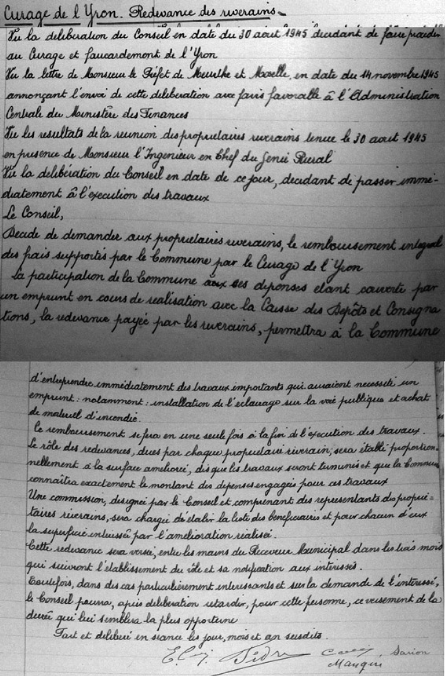 Curage de l'Yron. Redevance des riverains_
Vu la deliberation du Conseil en date du 30 aout 1945 decidant de faire proceder
au Curage et faucardement de l'Yron
Vu la lettre de Monsieur le Prefet de Meurthe et Moselle, en date du 14 novembre 1945
annonçant l'envoi de cette deliberation avec favis favorable à l'Administration
Centrale du Ministère des Finances
Vu les resultats de la reunion des proprietaires riverains tenue le 30 aout 1945
en presence de Monsieur l'Ingenieur en Chef du Genie Rural
Vu la deliberation du Conseil en date de ce jour, decidant de passer immé-
diatement à l'execution des travaux
Le Conseil,
Decide de demander aux proprietaires riverains, le remboursement integral
des frais supportés par le Commune par le Curage de l'Yron
la participation de la Commune aux ses depenses etant couverte par
un emprunt en cours de realisation avec la Caisse des Depôts et Consigna
tions, la redevance payée par les riverains, permettra à la Commune
d'entreprendre immédiatement des travaux importants qui auraient necessité un
emprunt: notamment: installation de l'eclairage sur la voie publique et achat
de materiel d'incendie.
Le remboursement se fera en une seule fois à la fin de l'execution des travaux.
Le rôle des redevances, dues par chaque proprietaire riverain, sera établi proportion-
nellement à la surface amelioreé, dès que les travaux seront terminés et que la Commune
connaîtra exactement le montant des depenses engagées pour ces travaux
Une commission, designée par le Conseil et comprenant des representants du proprié-
taires riverains, sera chargée d'etablir la liste des beneficiaires et pour chacun d'eux
la superficie interessée par l'amélioration réalisée.
Cette redevance sera versée, entre les mains du Receveur Municipal dans les trois mois
qui suivront l'etablissement du rôle et sa notification aux interessés.
Toutefois, dans des cas particulièrement interessants et sur la demande de l'interessé,
le Conseil pourra, après deliberation retarder, pour cette personne, ce versement de la
durée qui lui semblera la plus opportune
Fait et deliberé en seance les jour, mois et an susdits.
Mangin